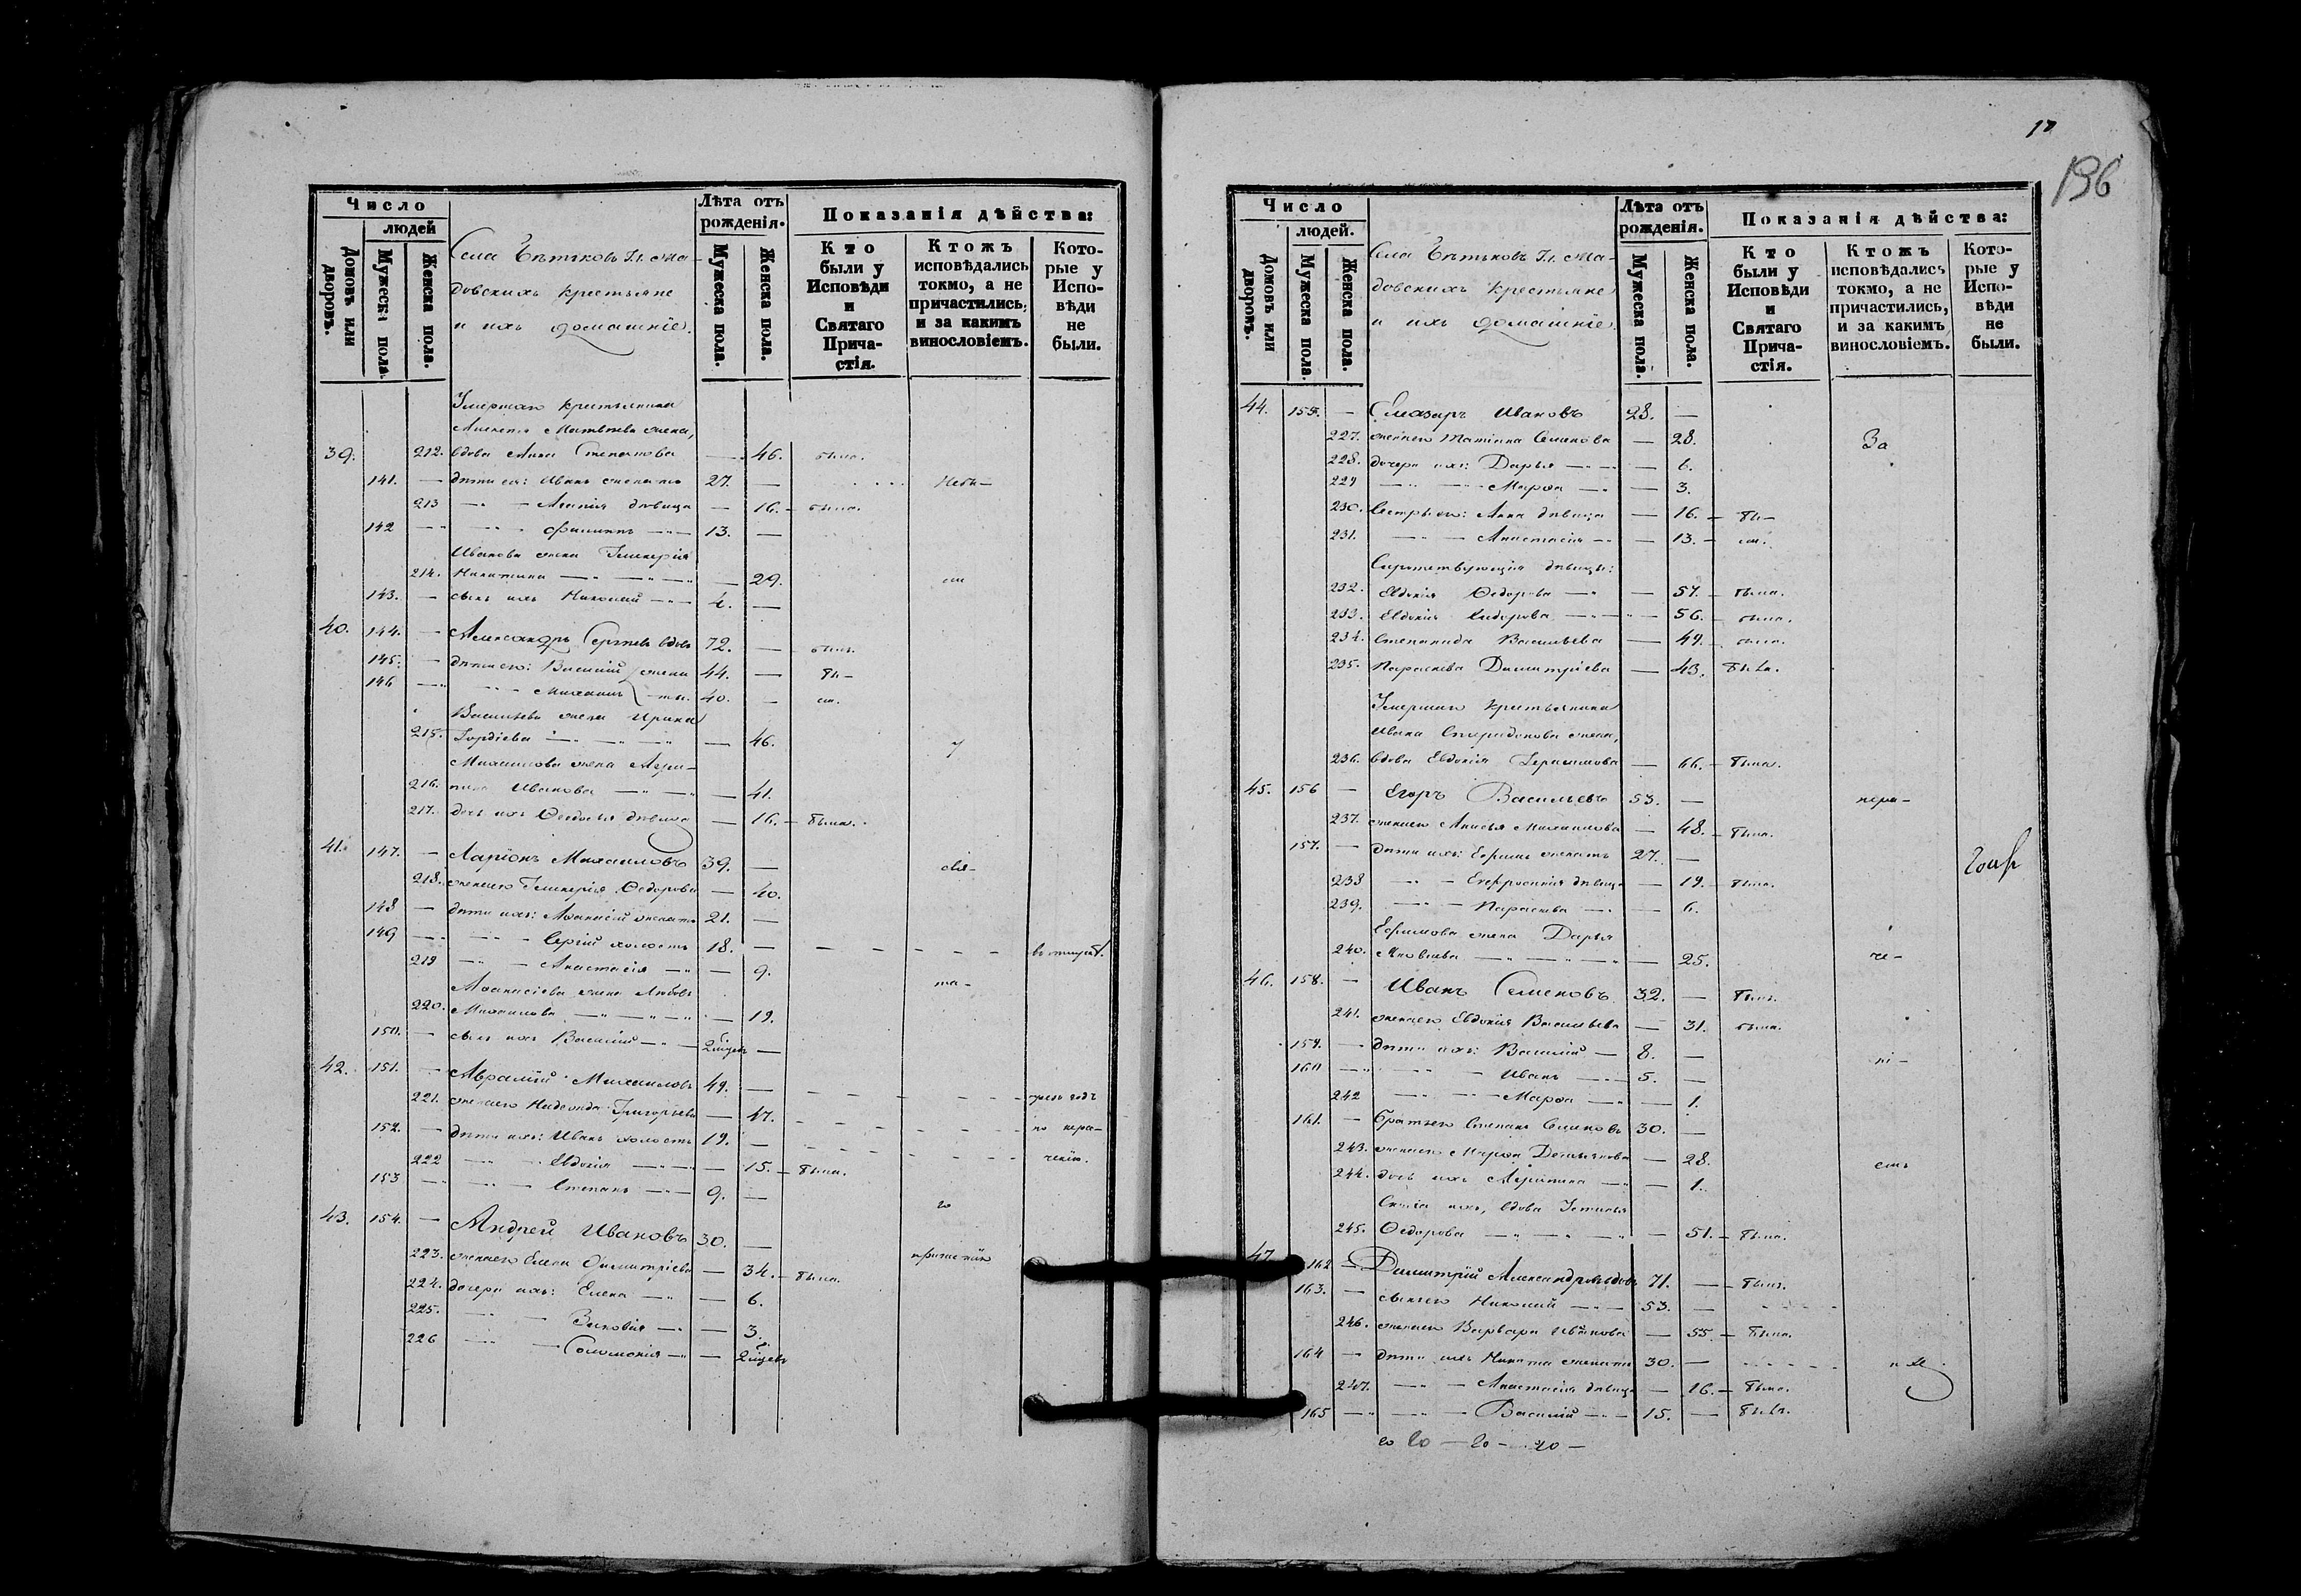 Число
людей
Домовъ или дворовъ.
Мужеска пола.
Женска пола.
Села
крестьяне
и ихъ домашніе.
Лѣта отъ рожденія.
Мужеска пола.
Женска пола.
Показанія дѣйства:
Кто были у Исповѣди и Святаго Прича-стія.
Ктожъ исповѣдались токмо, а не причастились; и за какимъ винословіемъ.
Кото-рые у Испо-вѣди не были.
Умершаго крестьянина
жена,
39. 212. вдова Анна Степанова — 46. была.
141. — дѣти ея: Иванъ женатъ 27. — Небы-
213 — дѣвица — 16. — была.
142 — Филиппъ — 13. —
Иванова жена Гликерія
214. Никитина — 29. ли
143. — сынъ ихъ Николай — 4. —
40. 144. — Александръ Сергѣевъ вдовъ 72. — былъ.
145. — дѣти его: Василій жена 44. — бы-
146 — Михаилъ ты. 40. — ли.
Васильева жена Ирина
215. Гордіева — 46. у
Михаилова жена Агри-
216. пина Иванова — 41.
217. дочь ихъ Ѳеодосья дѣвица — 16. — была.
41. 147. — Ларіонъ Михаиловъ 39. — свя-
218. жена его Гликерія Ѳедорова — 40.
148 — дѣти ихъ: Аѳанасій женатъ 21. —
149 — Сергій холостъ 18. —
219 — Анастасія — 9.
Аѳанасіева жена Любовь та-
220. Михаилова — 19.
150. — сынъ ихъ Василій — 2
42. 151. — Авраамій Михаиловъ 49. —
221. жена его Надежда Григорьева — 47. по нера-
152. — дѣти ихъ: Иванъ холостъ 19. — ченію.
222 — Евдокія — 15. — была.
153 — Степанъ — 9. — го
43. 154. — Андрей Ивановъ 30. —
223. жена его Елена Димитріева — 34. — была.
224. дочери ихъ: Елена — 6.
225. — Зиновія — 3.
226 — Соломонія — 2
17
196
Число
людей.
Домовъ или дворовъ.
Мужеска пола.
Женска пола.
Села
крестьяне
и ихъ домашніе.
Лѣта отъ рожденія.
Мужеска пола.
Женска пола.
Показанія дѣйства:
Кто были у Исповѣди и Святаго Прича-стія.
Ктожъ исповѣдались токмо, а не причастились, и за какимъ винословіемъ.
Кото-рые у Испо-вѣди не были.
44. 155. — Елеазаръ Ивановъ 28. —
227. жена его Татіана Семенова — 28. За
228. дочери ихъ: Дарья — 6.
229 — Марѳа — 3.
230. Сестры его: Анна дѣвица — 16. — бы-
231. — Анастасія — 13. — ли.
Сиротствующія дѣвицы:
232. Евдокія Ѳедорова — 57. — была.
233. Евдокія Сидорова — 56. — была.
234. Степанида Васильева — 49. — была.
235. Параскева Димитріева — 43. была.
Умершаго крестьянина
Ивана Спиридонова жена,
236. вдова Евдокія Герасимова — 66. — была.
45. 156 — Егоръ Васильевъ 53. — нера-
237. жена его Анисья Михаилова — 48. — была.
157. — дѣти ихъ: Ефимъ женатъ 27. —
238 — Евфросинія дѣвица — 19. — была.
239. — Параскева — 6.
Ефимова жена Дарья
240. Яковлева — 25. че-
46. 158. — Иванъ Семеновъ 32. — былъ.
241. жена его Евдокія Васильева — 31. была.
159. — дѣти ихъ: Василій — 8. — ні-
160 — Иванъ — 5. —
242 — Марѳа — 1.
161. — братъ его Степанъ Семеновъ 30. —
243. жена его Марѳа Демьянова — 28. емъ
244. дочь ихъ Агрипина — 1.
вдова
245. Ѳедорова — 51. — была.
47. 162 — Димитрій Александровъ вдовъ 71. — былъ.
163. — сынъ его Николай — 53. —
246. жена его Варвара Иванова — 55. — была.
164 — дѣти ихъ Никита женатъ 30. —
247. — Анастасія дѣвица — 16. — была.
165 — Василій — 15. — былъ.